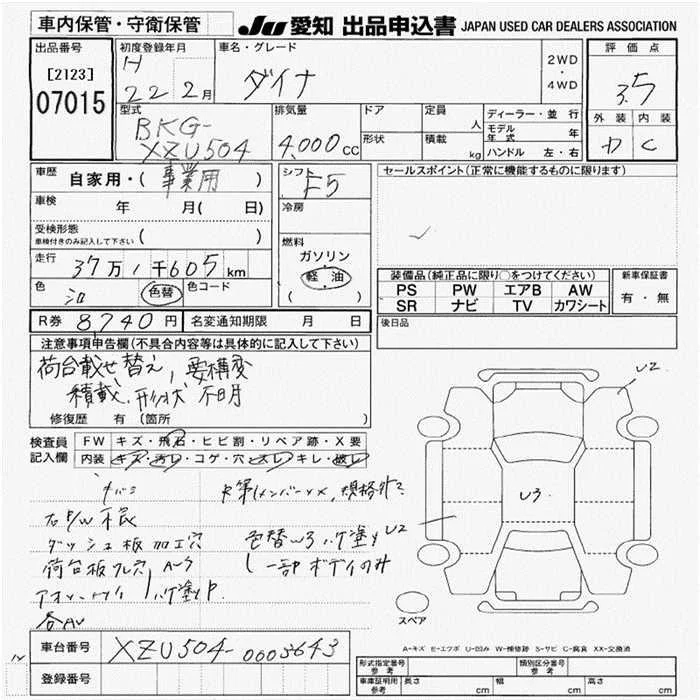 車内保管・守衛保管
JU 愛知 出品申込書 JAPAN USED CAR DEALERS ASSOCIATION
出品番号
[2123]
07015
初度登録年月
H
22 2月
車名・グレード
ダイナ
2WD
・
4WD
評価点
3.5
外装 内装
D C
型式
BKG-
XZU504
排気量
4,000cc
ドア
形状
定員
人
積載
kg
ディーラー・並行
モデル年式 年
ハンドル 左・右
車歴
自家用・(事業用)
車検
年 月( 日)
受検形態
車検付きのみ記入して下さい ( )
走行
37万1千605km
色
シロ
色替
色コード
シフト
F5
冷房
燃料
ガソリン
軽油
( )
セールスポイント(正常に機能するものに限ります)
装備品(純正品に限り○をつけてください)
PS PW エアB AW
SR ナビ TV カワシート
新車保証書
有・無
R券 8740円
名変通知期限 月 日
後日品
注意事項申告欄(不具合内容等は具体的に記入して下さい)
荷台載せ替え,要構変
積載,形状 不明
修復歴 有(箇所 )
検査員
記入欄
FW キズ・飛石・ヒビ割・リペア跡・X要
内装 キズ・汚レ・コゲ・穴・スレ・キレ・破レ
右P/W不良
ダッシュ板加工穴
荷台板穴
各AU
ハケ塗り
色替W3 ハケ塗り
一部ボディのみ
U2
U2
U3
スペア
A-キズ E-エクボ U-凹み W-補修跡 S-サビ C-腐食 XX-交換済
車台番号
XZU504-0003643
登録番号
形式指定番号
参考
類別区分番号
参考
車庫証明用
参考
長さ cm
幅 cm
高さ cm